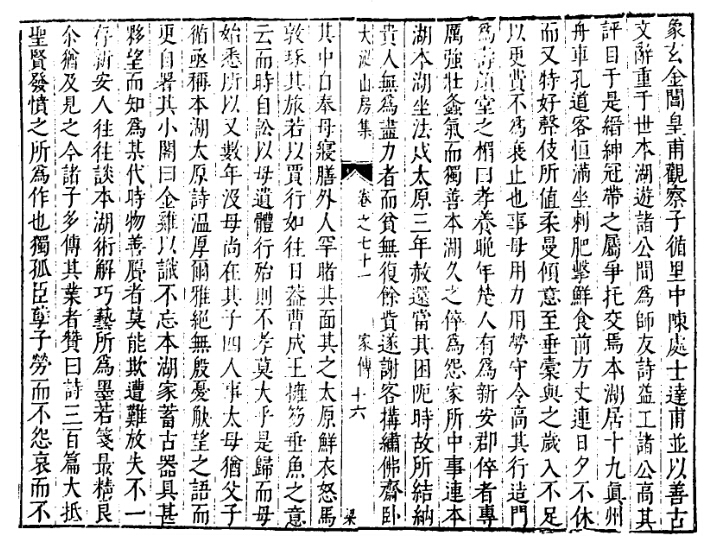 象玄金閶皇甫觀察子循里中陳處士達甫並以善古
文辭重于世本湖遊諸公間為師友詩益工諸公高其
評目于是縉紳冠帶之屬爭托交焉本湖居十九真州
舟車孔道客恒滿坐刺肥擊鮮食前方丈連日夕不休
而又特好聲伎所值柔曼傾意至垂橐與之歲入不足
以更費不為衰止也事母用力用勞守令高其行造門
為壽顏堂之楣曰孝養晚年楚人有為新安郡倅者專
厲強壯蠭氣而獨善本湖久之倅為怨家所中事連本
湖本湖坐法戍太原三年赦還當其困阨時故所結納
貴人無為盡力者而貧無復餘貲遂謝客搆繡佛齋臥
大泌山房集 卷之七十一 家傳 十六
其中自奉母寢膳外人罕睹其面其之太原鮮衣怒馬
敦琢其旅若以賈行如往日葢曹成王擁笏垂魚之意
云而時自訟以母遺體行殆則不孝莫大乎是歸而母
始悉所以又數年沒母尚在其子四人事太母猶父子
循亟稱本湖太原詩溫厚爾雅絕無殷憂觖望之語而
更自署其小閣曰金雞以識不忘本湖家蓄古器具甚
夥望而知為某代時物善贗者莫能欺遭難放失不一
存新安人往往談本湖術解巧藝所為墨若箋最精良
余猶及見之今諸子多傳其業者贊曰詩三百篇大抵
聖賢發憤之所為作也獨孤臣孽子勞而不怨哀而不